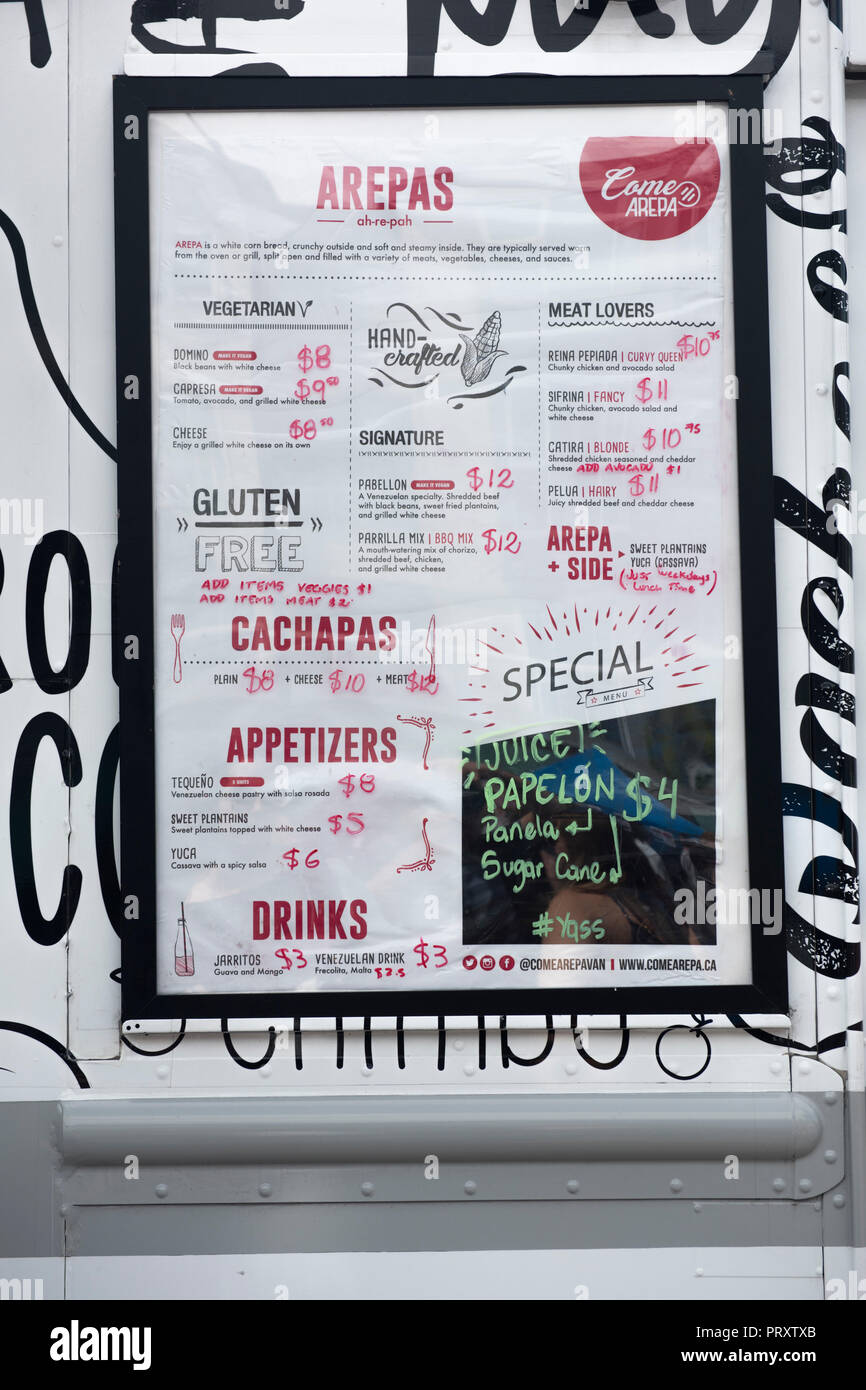 AREPAS
ah-re-pah
Come
AREPA
AREPA is a white corn bread, crunchy outside and soft and steamy inside. They are typically served warm
from the oven or grill, split open and filled with a variety of meats, vegetables, cheeses, and sauces.
VEGETARIAN
DOMINO MAKE IT VEGAN $8
Black beans with white cheese
CAPRESA MAKE IT VEGAN $9.50
Tomato, avocado, and grilled white cheese
CHEESE $8.50
Enjoy a grilled white cheese on its own
GLUTEN
FREE
ADD ITEMS VEGGIES $1
ADD ITEMS MEAT $2
HAND-
crafted
SIGNATURE
PABELLON MAKE IT VEGAN $12
A Venezuelan specialty. Shredded beef
with black beans, sweet fried plantains,
and grilled white cheese
PARRILLA MIX | BBQ MIX $12
A mouth-watering mix of chorizo,
shredded beef, chicken,
and grilled white cheese
MEAT LOVERS
REINA PEPIADA | CURVY QUEEN $10.75
Chunky chicken and avocado salad
SIFRINA | FANCY $11
Chunky chicken, avocado salad and
white cheese
CATIRA | BLONDE $10.75
Shredded chicken seasoned and cheddar
cheese ADD AVOCADO $1
PELUA | HAIRY $11
Juicy shredded beef and cheddar cheese
AREPA
+ SIDE
SWEET PLANTAINS
YUCA (CASSAVA)
(Just weekdays)
Lunch Time
CACHAPAS
PLAIN $8 + CHEESE $10 + MEAT $12
APPETIZERS
TEQUEÑO 5 UNITS $8
Venezuelan cheese pastry with salsa rosada
SWEET PLANTAINS
Sweet plantains topped with white cheese $5
YUCA
Cassava with a spicy salsa $6
DRINKS
JARRITOS $3
Guava and Mango
VENEZUELAN DRINK $3
Frescolita, Malta $3.5
SPECIAL
MENU
JUICE
PAPELÓN $4
Panela
Sugar Cane
#Yass
@COMEAREPAVAN | WWW.COMEAREPA.CA
alamy
Image ID: PRXTXB
www.alamy.com